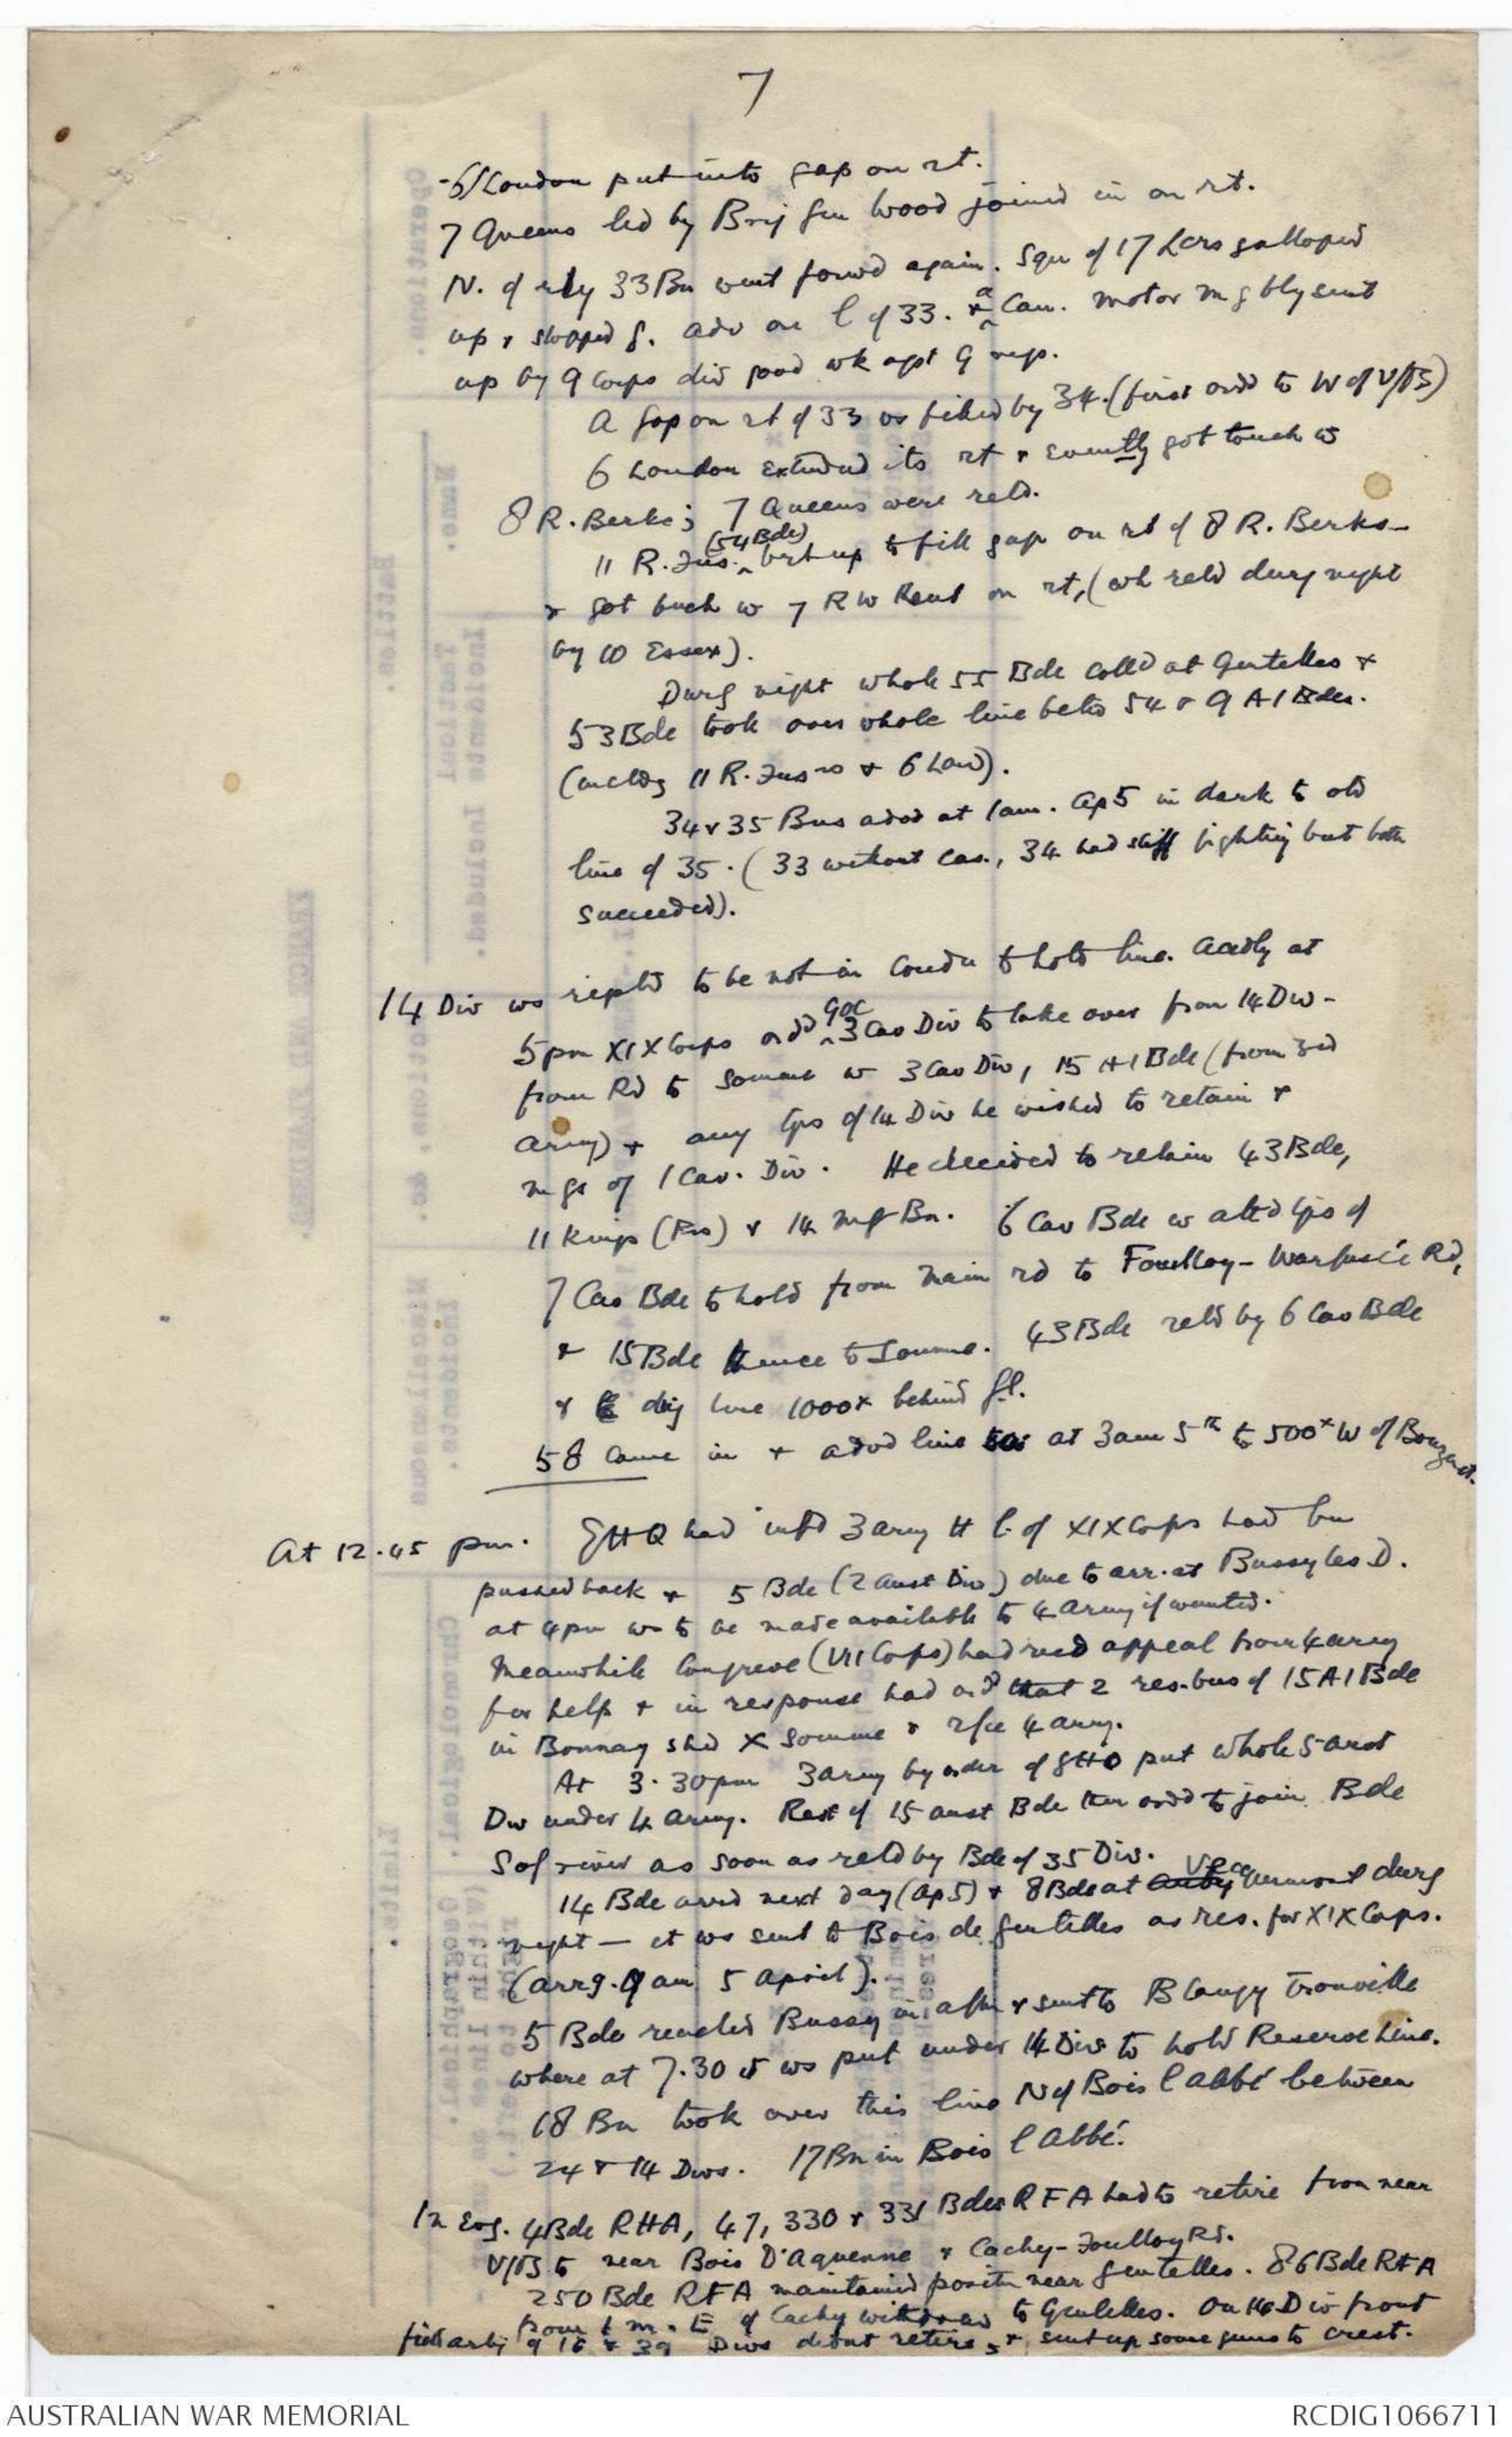 7
6/London put into gap on rt.
7 Queens led by Brig Gen Wood joined in on rt.
N. of rly 33 Bn went forwd again. Sqn of 17 Lcrs galloped
up & stopped g. adv on l of 33. & a Can. motor mg bty sent
up by 9 Corps did good wk agst G mgs.
A gap on rt of 33 ws filled by 34. (first ordd to W of V/B)
6 London extended its rt & eventlly got touch w
8 R. Berks; 7 Queens were reld.
11 R. Fus. (54 Bde) brt up to fill gap on rt of 8 R. Berks -
& got touch w 7 R W Kent on rt, (wh reld durg night
by 10 Essex).
Durg night whole 55 Bde colld at Gentelles &
53 Bde took over whole line betw 54 & 9 A I Bdes.
(incldg 11 R. Fusrs & 6 Lon).
34 & 35 Bns advd at 1 am. Ap 5 in dark to old
line of 35. (33 without cas., 34 had stiff fighting but both
succeeded).
14 Div ws reptd to be not in condn to hold line. Accdly at
5 pm XIX Corps ordd GOC 3 Cav Div to take over from 14 Div -
from Rd to Somme w 3 Cav Div, 15 A I Bde (from 3rd
Army) & any tps of 14 Div he wished to retain &
mgs of 1 Cav. Div. He decided to retain 43 Bde,
11 Kings (Prs) & 14 mg Bn. 6 Cav Bde w attd tps of
7 Cav Bde to hold from main rd to Fouilloy - Warfusée Rd,
& 15 Bde thence to Somme. 43 Bde reld by 6 Cav Bde
& dig line 1000x behind f.l.
58 came in & advd line at 3 am 5th to 500x W of Bouzenct.
At 12.45 pm. GHQ had infd 3 army tt l. of XIX Corps had bn
pushed back & 5 Bde (2 Aust Div) due to arr. at Bussy les D.
at 4 pm ws to be made available to 4 Army if wanted.
Meanwhile Congreve (VII Corps) had recd appeal from 4 army
for help & in response had ordd that 2 res. bns of 15 A I Bde
in Bonnay shd X Somme & r/ce 4 army.
At 3.30 pm 3 army by order of GHQ put whole 5 Aust
Div under 4 Army. Rest of 15 Aust Bde then ordd to join Bde
S of river as soon as reld by Bde of 35 Div.
14 Bde arrd next day (Ap 5) & 8 Bde at Vecquemont durg
night — it ws sent to Bois de Gentelles as res. for XIX Corps.
(arrg. 9 am 5 April).
5 Bde reached Bussy in aftn & sent to Blangy Tronville
where at 7.30 it ws put under 14 Div to hold Reserve Line.
18 Bn took over this line N of Bois l'Abbé between
24 & 14 Divs. 17 Bn in Bois l'Abbé.
In evg. 4 Bde RHA, 47, 330 & 331 Bdes RFA had to retire from near
V/B to near Bois D'Aquenne & Cachy - Fouilloy Rd.
250 Bde RFA maintained positn near Gentelles. 86 Bde RFA
from 1 m. E of Cachy withdrew to Gentelles. On 14 Div front
field arty of 16 & 39 Divs didnt retire, & sent up some guns to crest.
AUSTRALIAN WAR MEMORIAL
RCDIG1066711